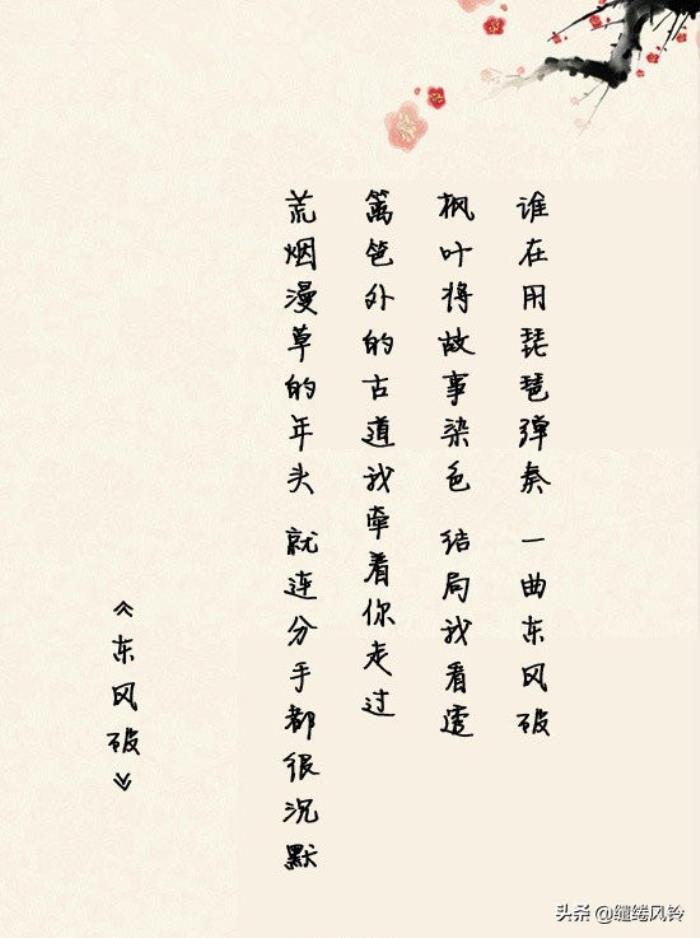 谁在用琵琶弹奏 一曲东风破
枫叶将故事染色 结局我看透
篱笆外的古道我牵着你走过
荒烟漫草的年头 就连分手都很沉默
《东风破》
头条 @缱绻风铃